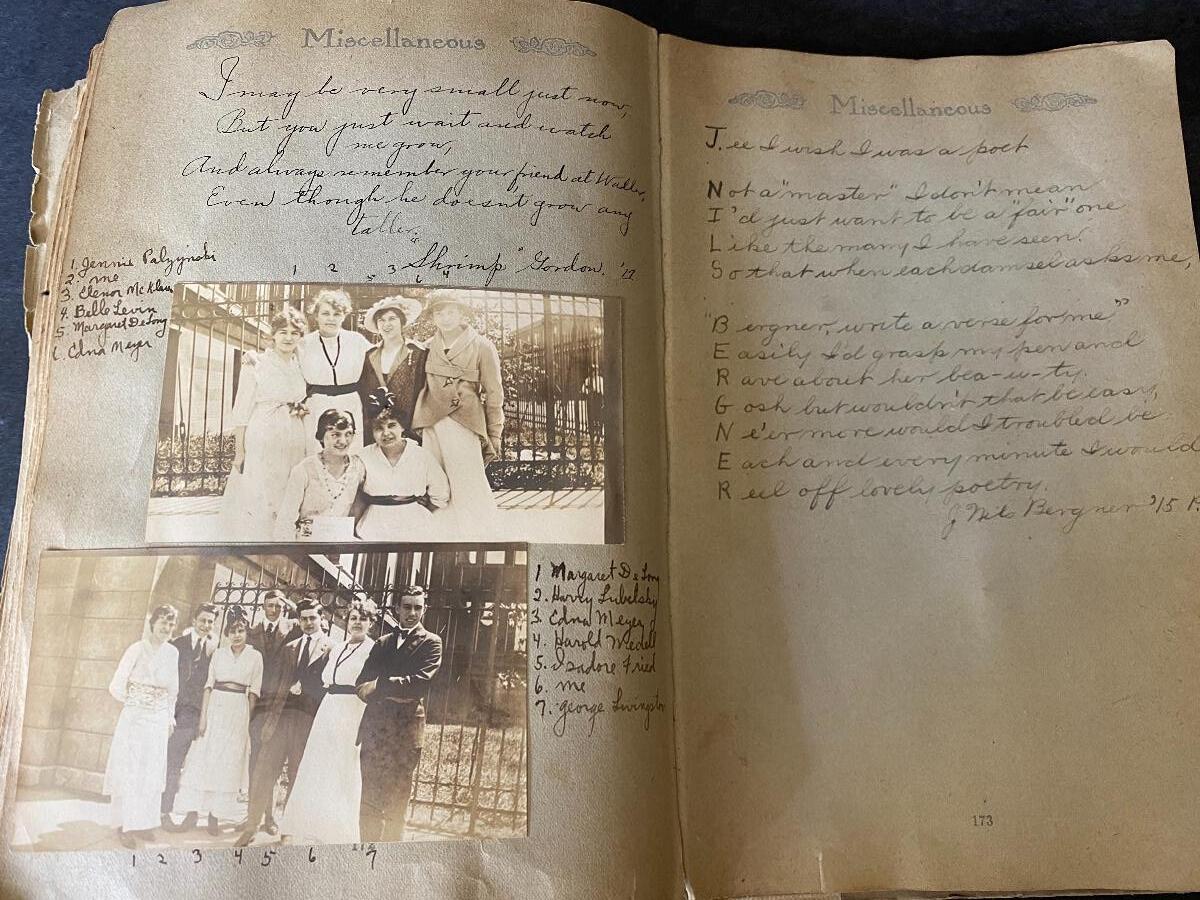 Miscellaneous
I may be very small just now,
But you just wait and watch
me grow,
And always remember your friend at Waller,
Even though he doesnt grow any
taller.
"Shrimp" Gordon. '17.
1. Jennie Palzynski
2. me
3. Elenor McKlain
4. Belle Levin
5. Margaret DeLong
6. Edna Meyer
1 2 3
5 6 4
1 Margaret DeLong
2. Harry Lubelsky
3. Edna Meyer
4. Harold Wedell
5. Isadore Fried
6. me
7. George Livingston
1 2 3 4 5 6 7
Miscellaneous
J.ee I wish I was a poet
Not a "master" I don't mean
I'd just want to be a "fair" one
Like the many I have seen.
So that when each damsel asks me,
"Bergner, write a verse for me"
Easily I'd grasp my pen and
Rave about her bea-u-ty.
Gosh but wouldn't that be easy,
Ne'er more would I troubled be
Each and every minute I would
Reel off lovely poetry.
J Nils Bergner '15
173